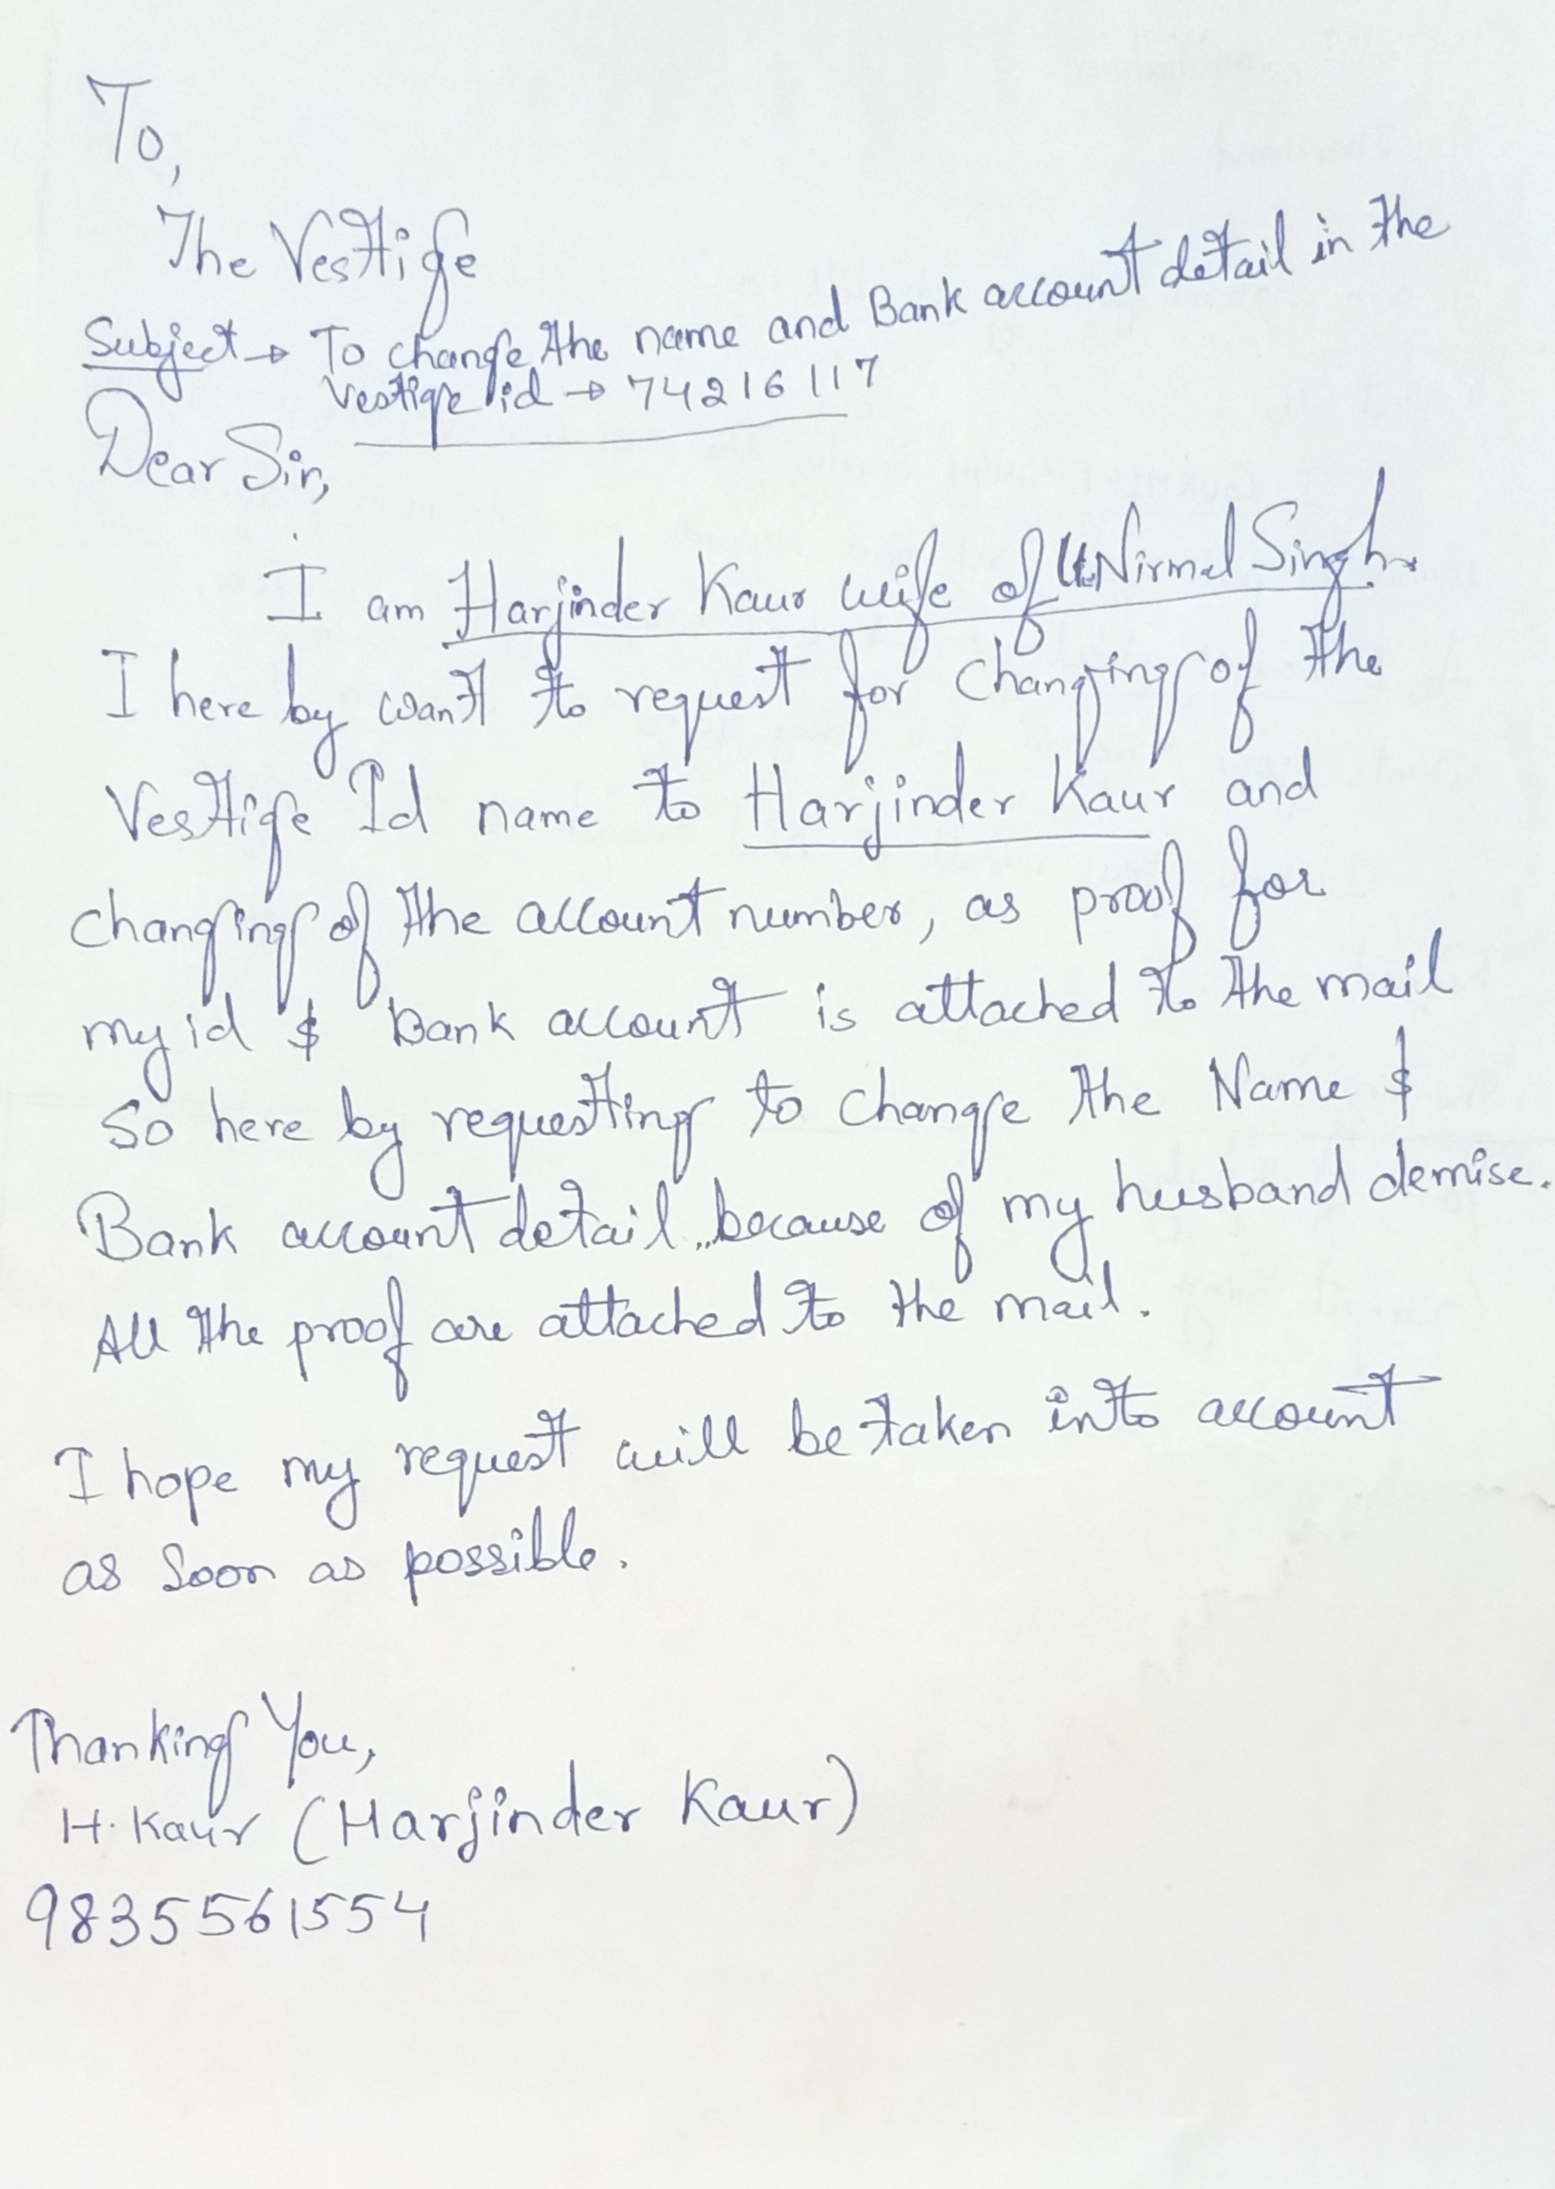 To,
The Vestige
Subject → To change the name and Bank account detail in the
Vestige id → 74216117
Dear Sir,
I am Harjinder Kaur wife of Lt. Nirmal Singh.
I here by want to request for changing of the
Vestige Id name to Harjinder Kaur and
changing of the account number, as proof for
my id & Bank account is attached to the mail
So here by requesting to change the Name &
Bank account detail, because of my husband demise.
All the proof are attached to the mail.
I hope my request will be taken into account
as soon as possible.
Thanking You,
H. Kaur (Harjinder Kaur)
9835561554